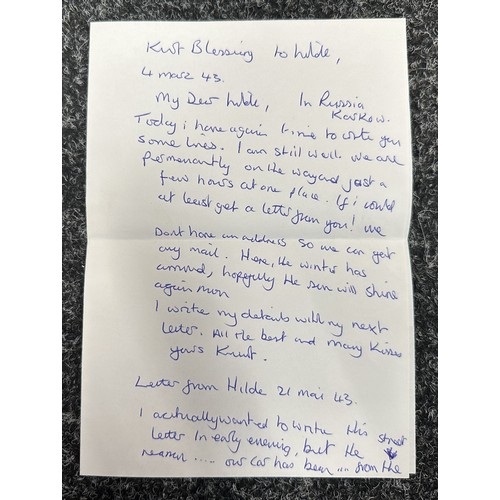 Kurt Blessing to hilde,
4 marz 43.
My Dear hilde, In Russia
Karkow.
Today i have again time to write you
some lines. I am still well. we are
permanantly on the way and just a
few hours at one place. If i could
at least get a letter from you! we
Dont have an address so we can get
any mail. Here, the winter has
arrived, hopefully the sun will shine
again
I write my details with my next
letter. All the best and many Kisses
yours Kurt.
Letter from Hilde 21 mai 43.
I acturally wanted to write this
letter In early evening, but the
reason ..... our car has been ... from the